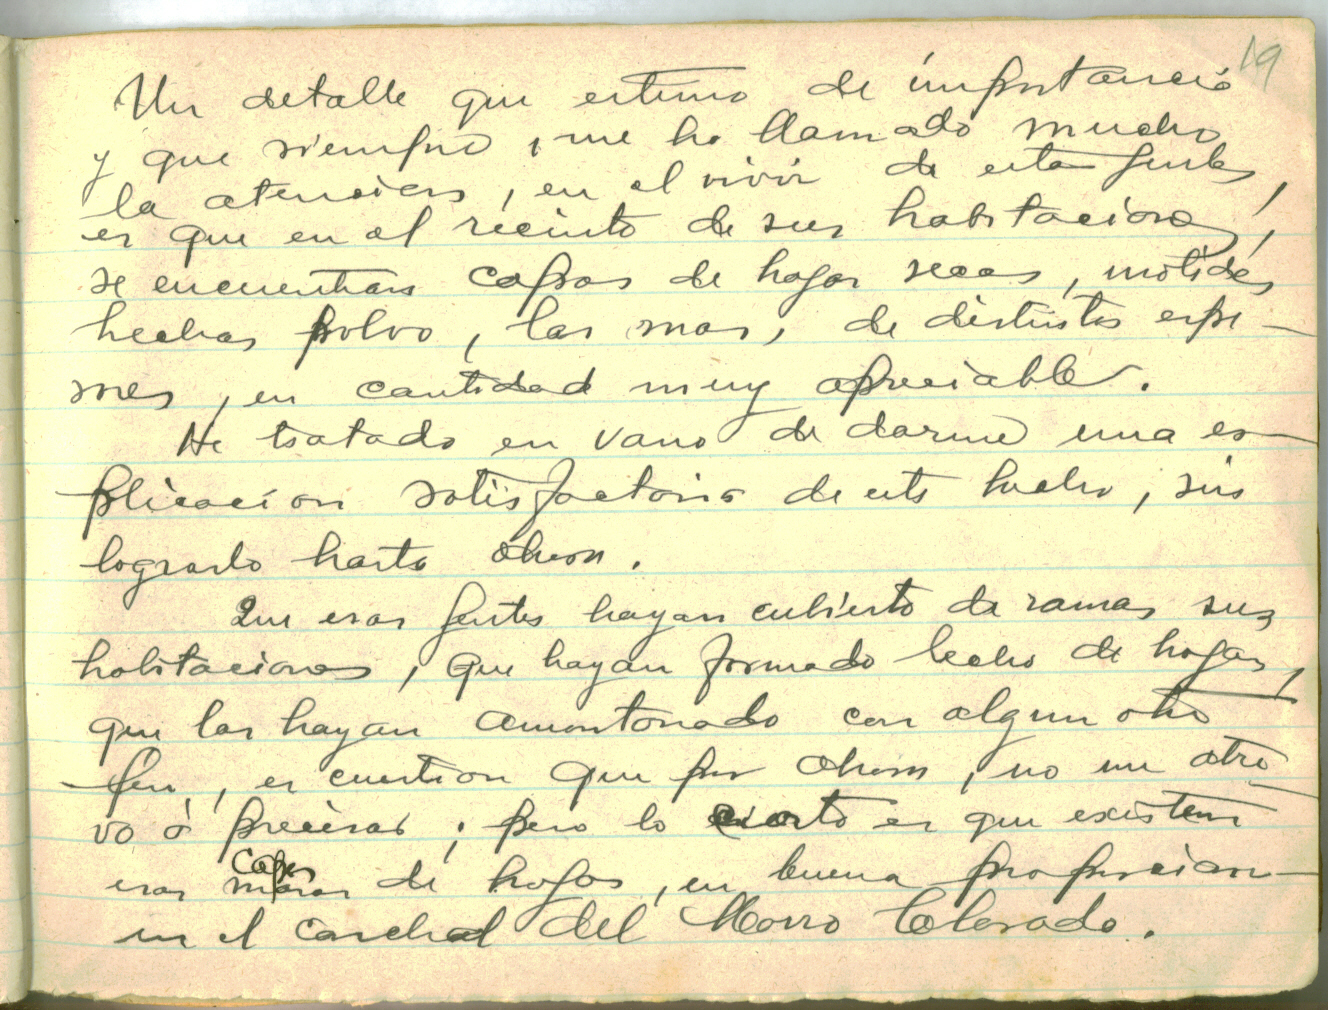 19
Un detalle que estimo de importancia
y que siempre, me ha llamado mucho
la atencion, en el vivir de esta gentes,
es que en el recinto de sus habitaciones,
se encuentran capas de hojas secas, molidas
hechas polvo, las mas, de distintos espe-
sores, en cantidad muy apreciable.
He tratado en vano de darme una es-
plicacion satisfactoria de este hecho, sin
lograrlo hasta ahora.
Que esas gentes hayan cubierto de ramas sus
habitaciones, que hayan formado lecho de hojas,
que las hayan amontonado con algun otro
fin, es cuestion que por ahora, no me atre
vo á precisar; pero lo cierto es que existen
capas
esas de hojas, en buena proporcion
en el conchal del Morro Colorado.